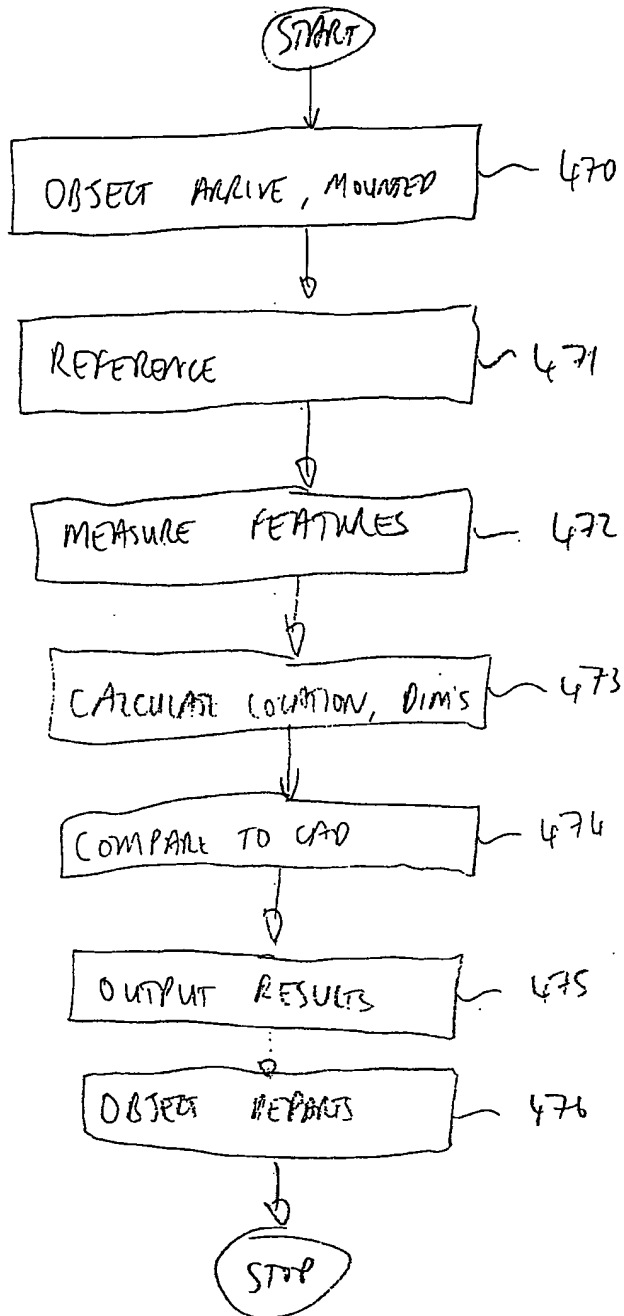 START
OBJECT ARRIVE, MOUNTED 470
REFERENCE 471
MEASURE FEATURES 472
CALCULATE LOCATION, DIM'S 473
COMPARE TO CAD 474
OUTPUT RESULTS 475
OBJECT DEPARTS 476
STOP